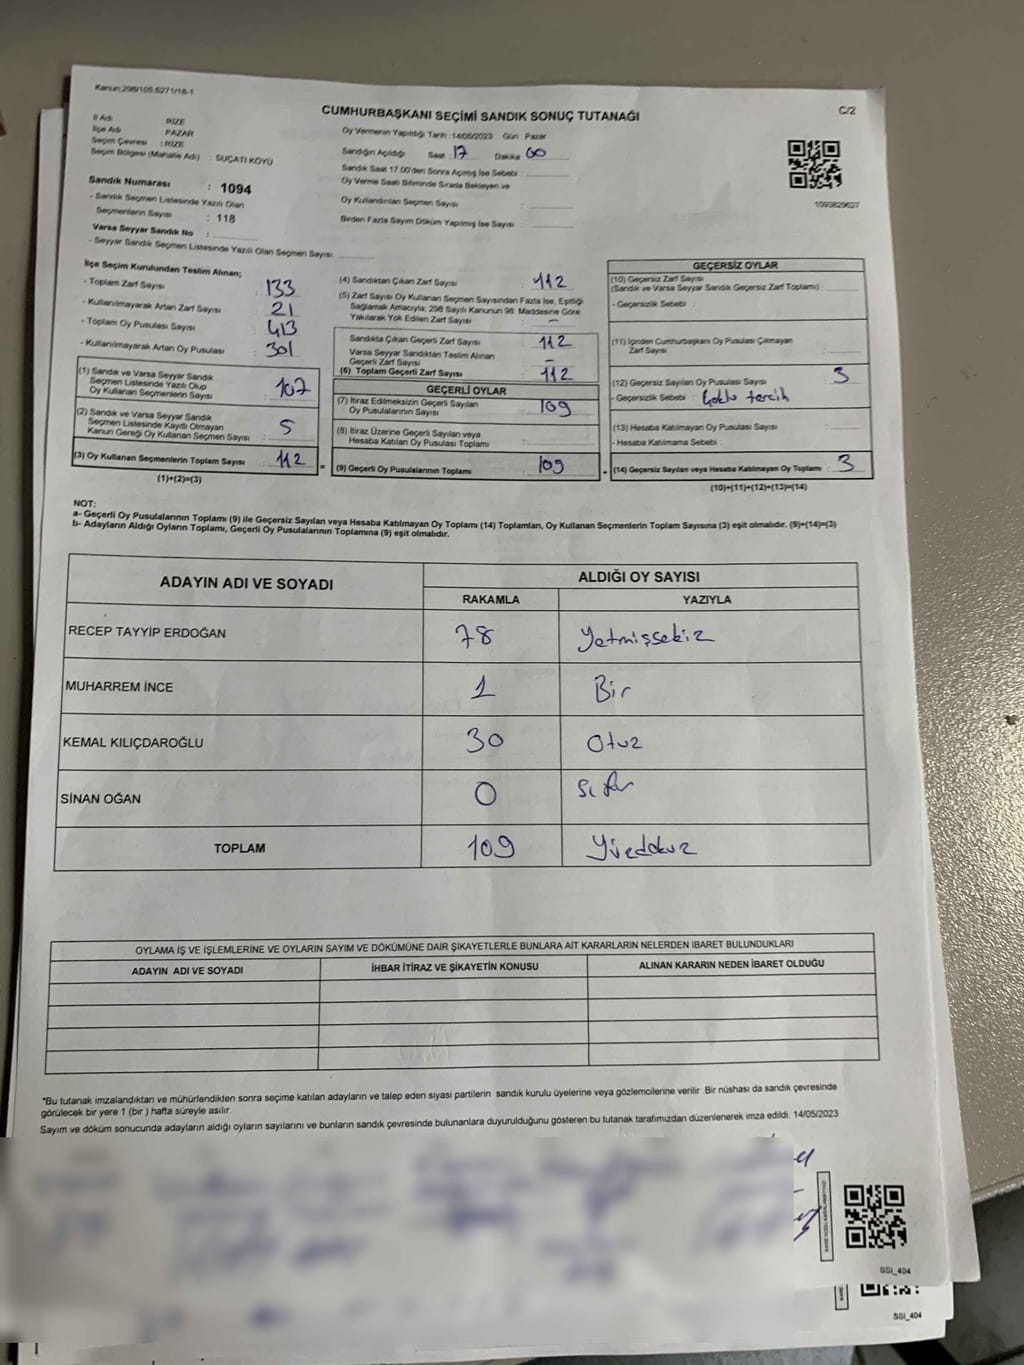 Kanun;298/105;6271/18-1
CUMHURBAŞKANI SEÇİMİ SANDIK SONUÇ TUTANAĞI
C/2
İl Adı : RİZE
İlçe Adı : PAZAR
Seçim Çevresi : RİZE
Seçim Bölgesi (Mahalle Adı) : SUÇATI KÖYÜ
Sandık Numarası : 1094
- Sandık Seçmen Listesinde Yazılı Olan
Seçmenlerin Sayısı : 118
Varsa Seyyar Sandık No :
- Seyyar Sandık Seçmen Listesinde Yazılı Olan Seçmen Sayısı:
Oy Vermenin Yapıldığı Tarih :14/05/2023 Gün : Pazar
Sandığın Açıldığı Saat : 17 Dakika : 00
Sandık Saat 17.00'den Sonra Açmış İse Sebebi :
Oy Verme Saati Bitiminde Sırada Bekleyen ve
Oy Kullandırılan Seçmen Sayısı :
Birden Fazla Sayım Döküm Yapılmış İse Sayısı :
1093829627
İlçe Seçim Kurulundan Teslim Alınan;
- Toplam Zarf Sayısı : 133
- Kullanılmayarak Artan Zarf Sayısı : 21
- Toplam Oy Pusulası Sayısı : 413
- Kullanılmayarak Artan Oy Pusulası : 301
(1) Sandık ve Varsa Seyyar Sandık
Seçmen Listesinde Yazılı Olup
Oy Kullanan Seçmenlerin Sayısı : 107
(2) Sandık ve Varsa Seyyar Sandık
Seçmen Listesinde Kayıtlı Olmayan
Kanun Gereği Oy Kullanan Seçmen Sayısı : 5
(3) Oy Kullanan Seçmenlerin Toplam Sayısı : 112
(1)+(2)=(3)
=
(4) Sandıktan Çıkan Zarf Sayısı : 112
(5) Zarf Sayısı Oy Kullanan Seçmen Sayısından Fazla İse, Eşitliği
Sağlamak Amacıyla; 298 Sayılı Kanunun 98. Maddesine Göre
Yakılarak Yok Edilen Zarf Sayısı : –
Sandıkta Çıkan Geçerli Zarf Sayısı : 112
Varsa Seyyar Sandıktan Teslim Alınan
Geçerli Zarf Sayısı : –
(6) Toplam Geçerli Zarf Sayısı : 112
GEÇERLİ OYLAR
(7) İtiraz Edilmeksizin Geçerli Sayılan
Oy Pusulalarının Sayısı : 109
(8) İtiraz Üzerine Geçerli Sayılan veya
Hesaba Katılan Oy Pusulası Toplamı :
(9) Geçerli Oy Pusulalarının Toplamı : 109
+
GEÇERSİZ OYLAR
(10) Geçersiz Zarf Sayısı
(Sandık ve Varsa Seyyar Sandık Geçersiz Zarf Toplamı) :
- Geçersizlik Sebebi :
(11) İçinden Cumhurbaşkanı Oy Pusulası Çıkmayan
Zarf Sayısı :
(12) Geçersiz Sayılan Oy Pusulası Sayısı : 3
- Geçersizlik Sebebi : Çoklu tercih
(13) Hesaba Katılmayan Oy Pusulası Sayısı :
- Hesaba Katılmama Sebebi :
(14) Geçersiz Sayılan veya Hesaba Katılmayan Oy Toplamı : 3
(10)+(11)+(12)+(13)=(14)
NOT:
a- Geçerli Oy Pusulalarının Toplamı (9) ile Geçersiz Sayılan veya Hesaba Katılmayan Oy Toplamı (14) Toplamları, Oy Kullanan Seçmenlerin Toplam Sayısına (3) eşit olmalıdır. (9)+(14)=(3)
b- Adayların Aldığı Oyların Toplamı, Geçerli Oy Pusulalarının Toplamına (9) eşit olmalıdır.
ADAYIN ADI VE SOYADI
ALDIĞI OY SAYISI
RAKAMLA YAZIYLA
RECEP TAYYİP ERDOĞAN 78 Yetmişsekiz
MUHARREM İNCE 1 Bir
KEMAL KILIÇDAROĞLU 30 Otuz
SİNAN OĞAN 0 Sıfır
TOPLAM 109 Yüzdokuz
OYLAMA İŞ VE İŞLEMLERİNE VE OYLARIN SAYIM VE DÖKÜMÜNE DAİR ŞİKAYETLERLE BUNLARA AİT KARARLARIN NELERDEN İBARET BULUNDUKLARI
ADAYIN ADI VE SOYADI İHBAR İTİRAZ VE ŞİKAYETİN KONUSU ALINAN KARARIN NEDEN İBARET OLDUĞU
*Bu tutanak imzalandıktan ve mühürlendikten sonra seçime katılan adayların ve talep eden siyasi partilerin sandık kurulu üyelerine veya gözlemcilerine verilir. Bir nüshası da sandık çevresinde
görülecek bir yere 1 (bir ) hafta süreyle asılır.
Sayım ve döküm sonucunda adayların aldığı oyların sayılarını ve bunların sandık çevresinde bulunanlara duyurulduğunu gösteren bu tutanak tarafımızdan düzenlenerek imza edildi. 14/05/2023
SSI_404
SSI_404